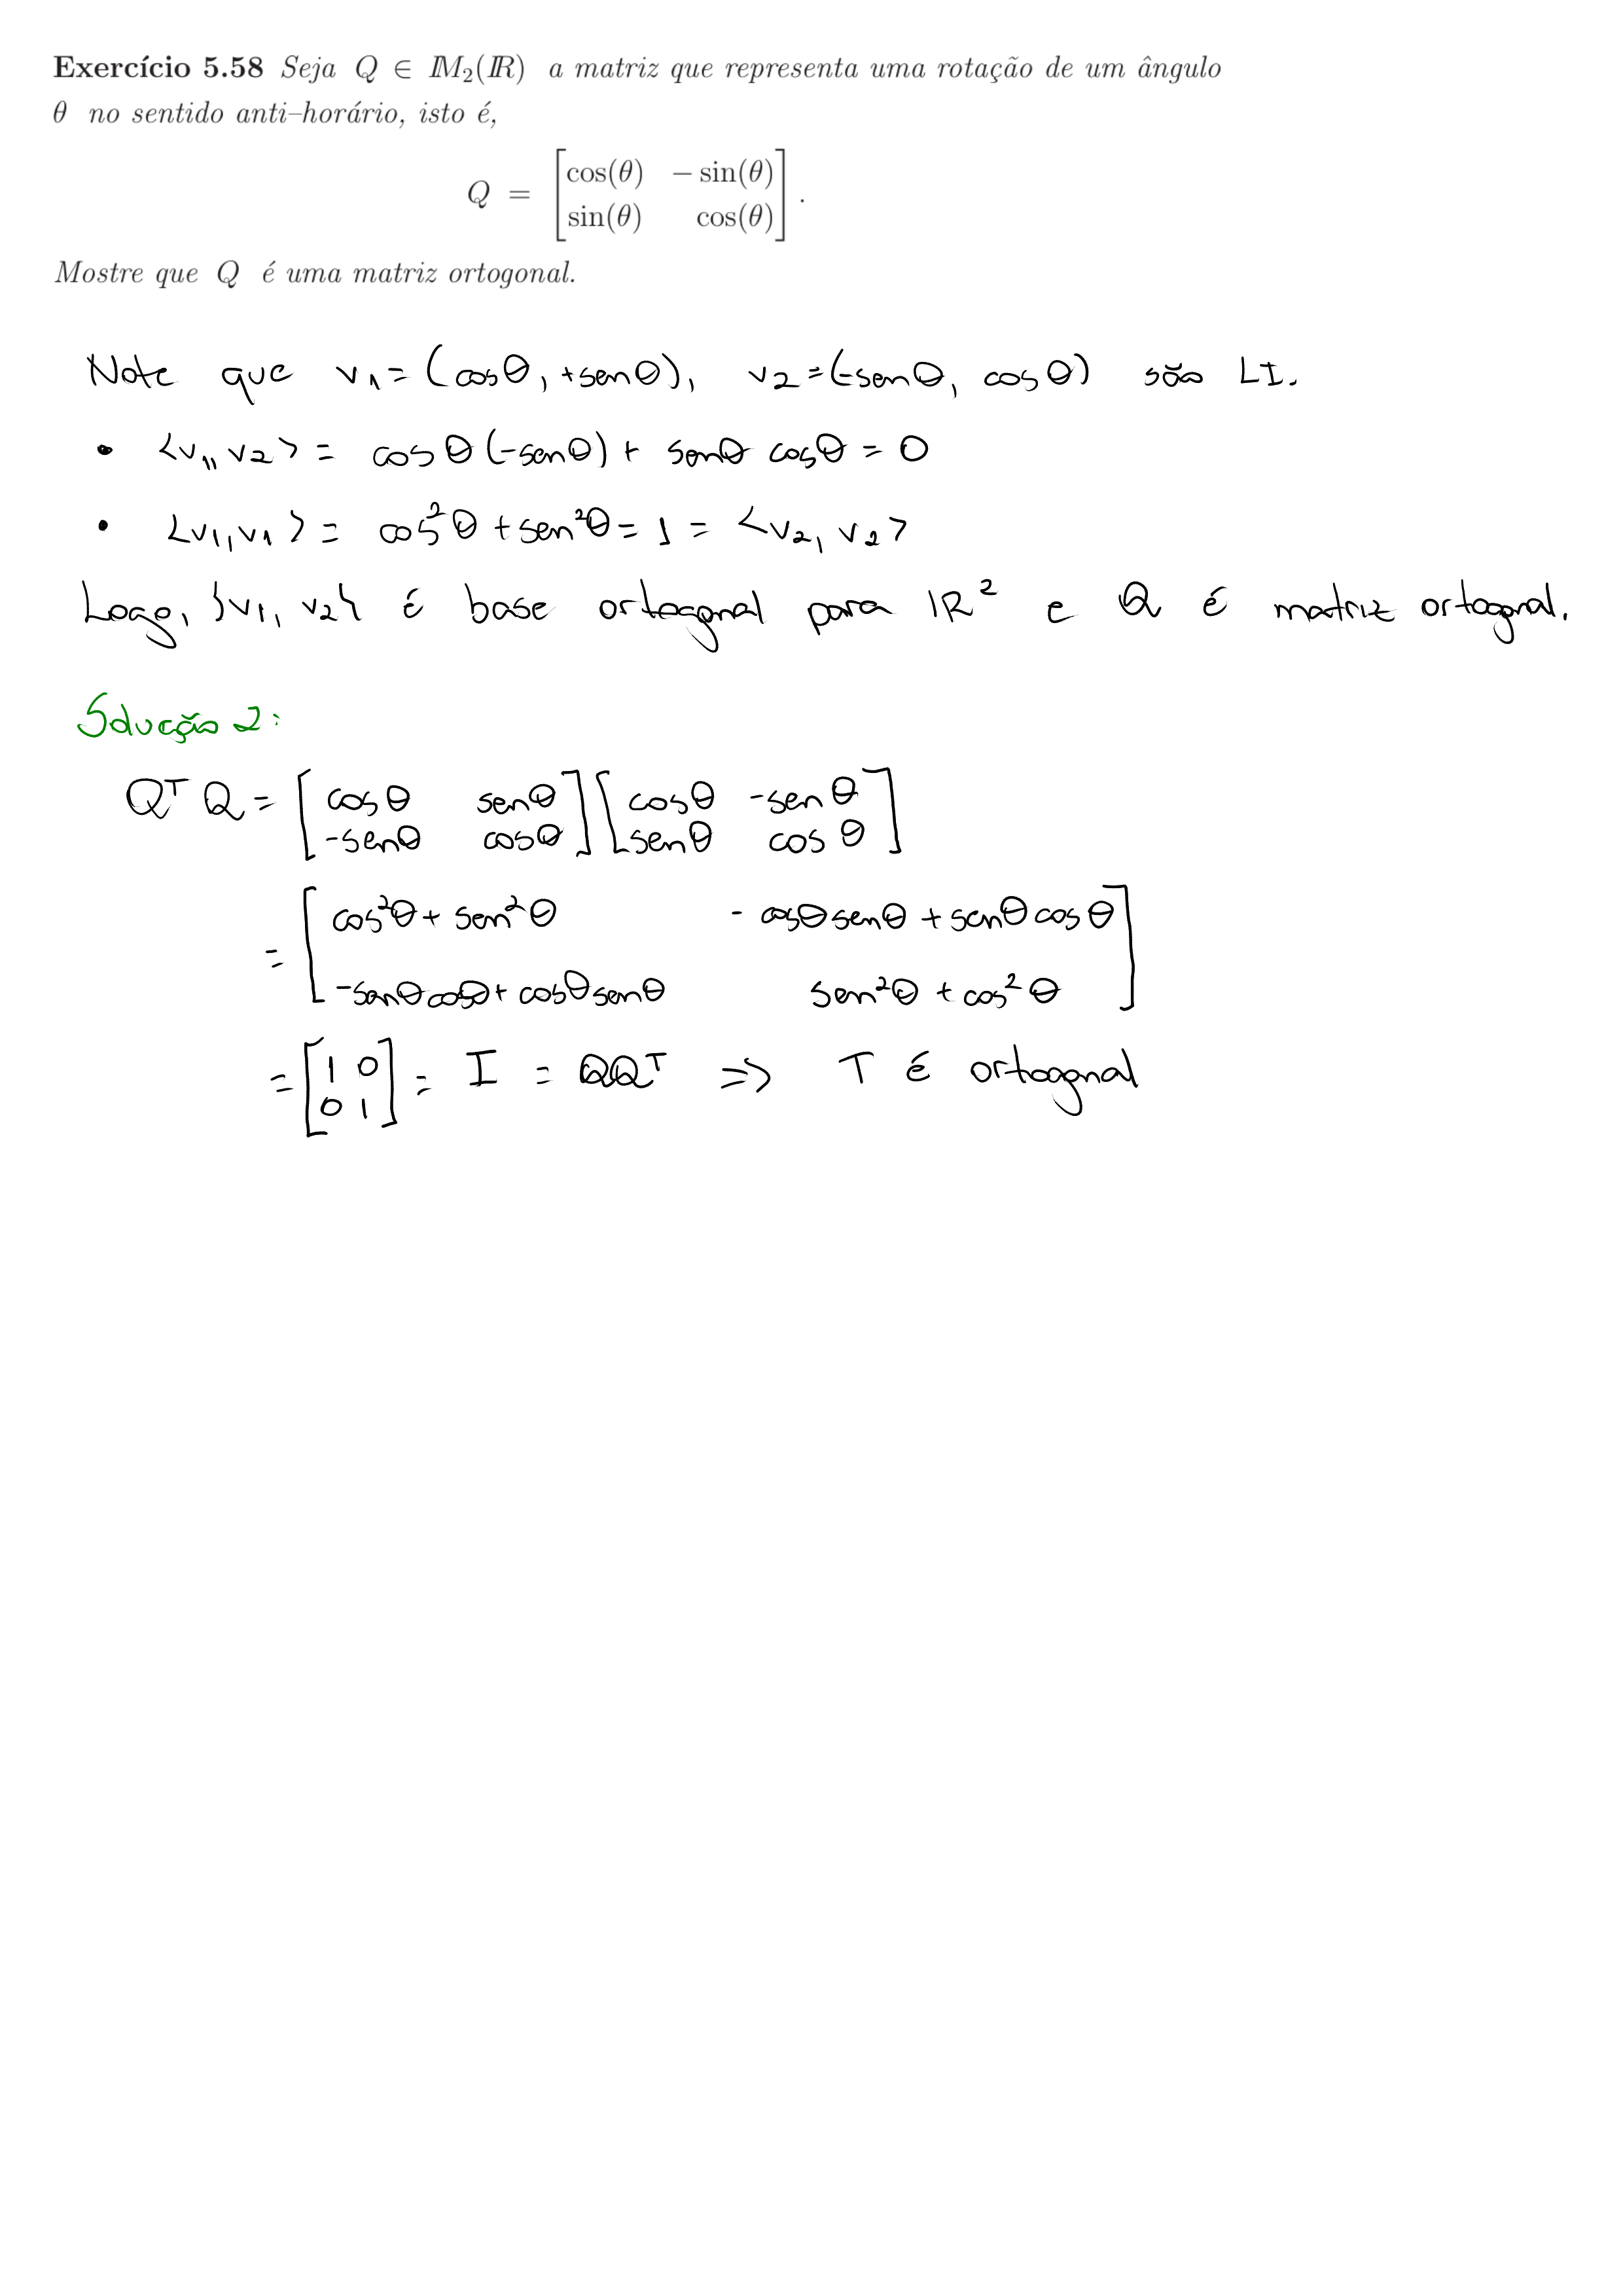 Exercício 5.58 Seja Q ∈ M₂(ℝ) a matriz que representa uma rotação de um ângulo
θ no sentido anti–horário, isto é,
Q = [cos(θ) − sin(θ)
sin(θ) cos(θ)] .
Mostre que Q é uma matriz ortogonal.
Note que v₁ = (cosθ, +senθ), v₂ = (-senθ, cosθ) são LI.
• <v₁, v₂> = cosθ(-senθ) + senθ cosθ = 0
• <v₁, v₁> = cos²θ + sen²θ = 1 = <v₂, v₂>
Logo, {v₁, v₂} é base ortogonal para ℝ² e Q é matriz ortogonal.
Solução 2:
Qᵀ Q = [cosθ senθ] [cosθ -senθ]
[-senθ cosθ] [senθ cosθ]
= [cos²θ + sen²θ - cosθ senθ + senθ cosθ]
[-senθ cosθ + cosθ senθ sen²θ + cos²θ]
= [1 0] = I = QQᵀ => T é ortogonal
[0 1]